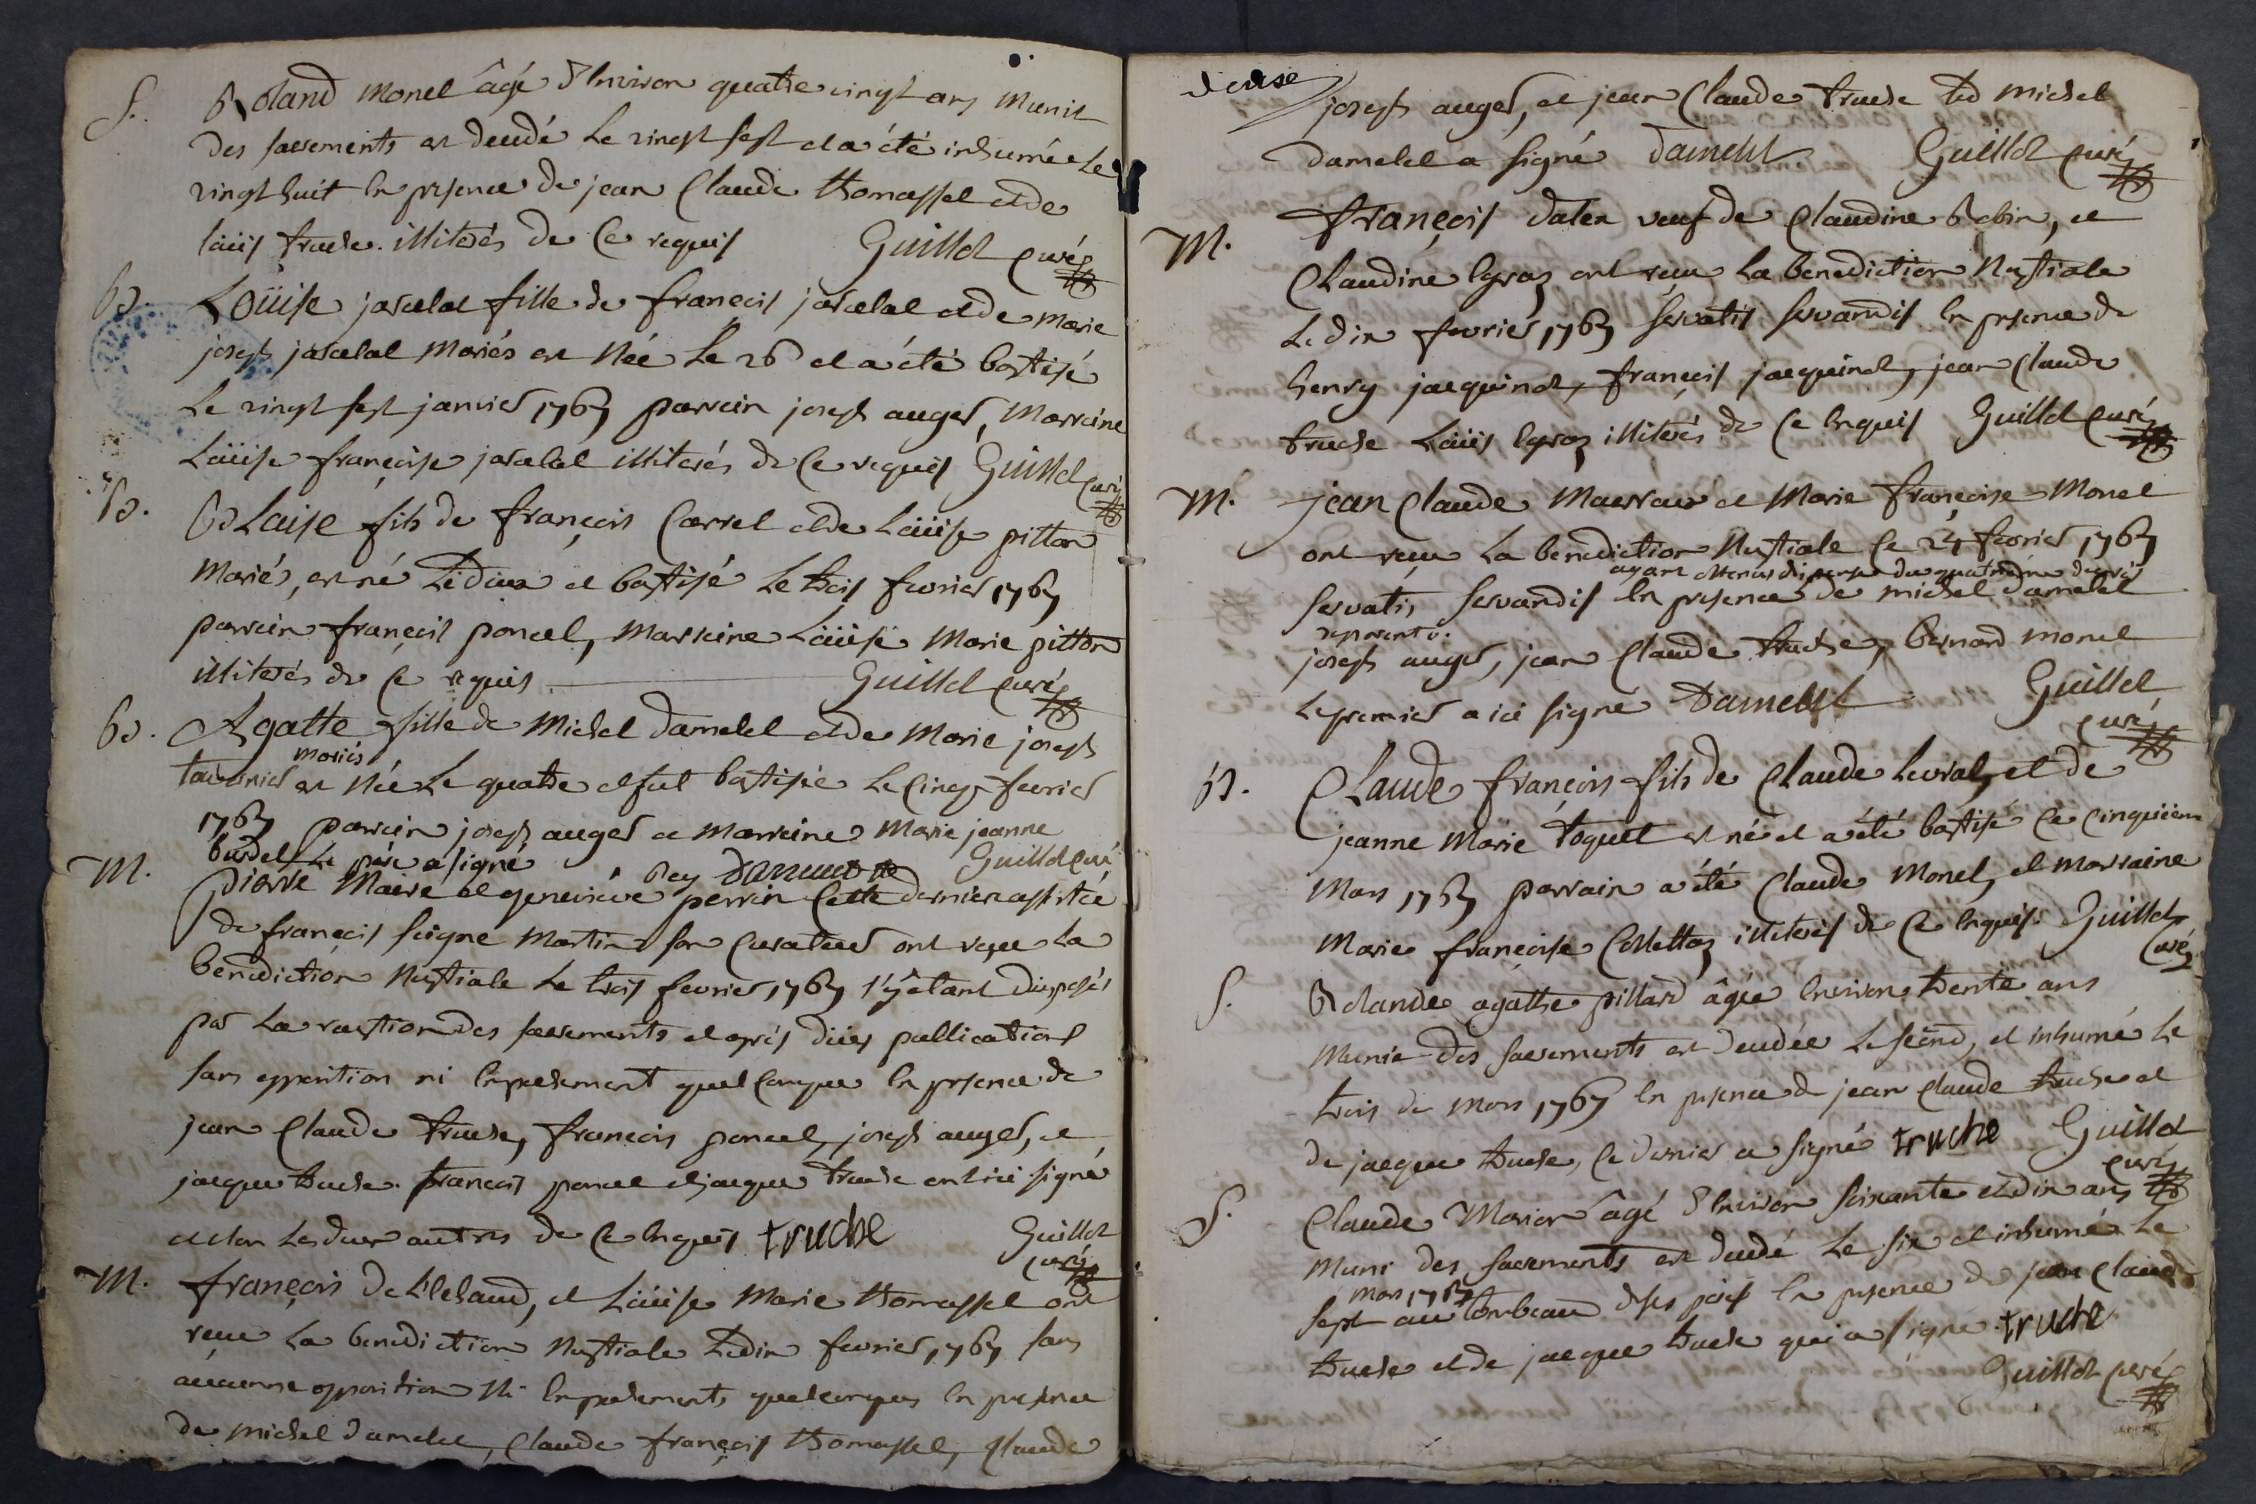 S. Roland monel âgé d'Environ quatre vingt ans Munit
des sacrements est decedé Le vingt sept et a été inhumé Le
vingt huit En presence de jean Claude thomasset et de
loüis truche. illiterés de Ce requis Guillot Curé
B. Loüise javelot fille de françois javelot et de marie
joseph javelot Mariés est Née Le 26 et a été baptisé
Le vingt sept janvier 1767 parrain joseph auger, Marraine
Loüise françoise javelot illiterés de Ce requis Guillot Curé
B. Blaise fils de françois Carrel et de Loüise pitton
Mariés, est né Le deux et baptisé Le trois fevrier 1767
parrain françois poncel, Marraine Loüise Marie pitton
illiterés de Ce requis Guillot Curé
B. Agatte fille de Michel damelet et de Marie joseph
mariés
tavernier est Née Le quatre et fut baptisée Le Cinq fevrier
1767 parrain joseph auger et marraine Marie jeanne
burdel Le père a signé Guillot Curé
M. pierre Maire et genevieve perrin Cette derniere assistée
de françois seigne Martin son Curateur ont reçue La
benediction Nuptiale Le trois fevrier 1767 s'ÿ etant disposés
par La reception des sacrements et après dües publications
sans opposition ni Empechement quel Conque En presence de
jean Claude truche, françois poncel, joseph auger, et
jacque truche. françois poncel et jacque truche ont ici signé
et non Les deux autres de Ce Enquis truche Guillot
Curé
M. françois de L'lechaud, et Loüise Marie thomasset ont
reçue La benediction Nuptiale Le dix fevrier 1767 sans
aucunne opposition Ni Empechements quelconques En presence
de michel damelet, Claude françois thomasset, Claude
joseph auger, et jean Claude truche Led michel
damelet a signé damelet Guillot Curé
M. François dalex veuf de Claudine Robin, et
Claudine Egroz ont reçue La benediction Nuptiale
Le dix fevrier 1767 servatis servandis En presence de
henry jacquinot, françois jacquinot, jean Claude
truche Loüis Egroz illiterés de Ce Enquis Guillot Curé
M. jean Claude Maerraud et Marie françoise Monel
ont reçue La benediction Nuptiale Ce 24 fevrier 1767
ayant obtenus dispense du quatrième degré
servatis servandis En presence de michel damelet
represente.
joseph auger, jean Claude truche, bernard monel
Le premier a ici signé Damelet Guillot
Curé
B. Claude françois fils de Claude Levrat, et de
jeanne Marie toquet est né et a été baptisé Ce Cinquiéme
Mars 1767 parrain a été Claude Monel, et marraine
Marie françoise Collettaz illiterés de Ce Enquis. Guillot
Curé
S. Rolande agathe pillard âgée Environ trente ans
Munie des sacrements est decedée Le second, et inhumé Le
trois de mars 1767 En presence de jean Claude truche et
de jacque truche, Ce dernier a signé truche Guillot
Curé
S. Claude Marion âgé d'Environ soixante et dix ans
Muni des sacrements est decedé Le six et inhumé Le
mars 1767
sept au tombeau de ses pères En presence de jean Claude
truche et de jacque truche qui a signé truche
Guillot Curé